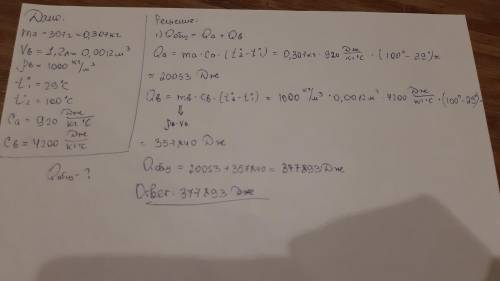 Дано:
mа = 307г = 0,307кг
Vв = 1,2л = 0,0012 м³
ρв = 1000 кг/м³
t°₁ = 29°C
t°₂ = 100°C
Cа = 920 Дж/кг°C
Cв = 4200 Дж/кг°C
Qобщ - ?
Решение:
1) Qобщ = Qа + Qв
Qа = mа · Cа · (t°₂ - t°₁) = 0,307кг · 920 Дж/кг°C · (100° - 29°) =
= 20053 Дж
Qв = mв · Cв · (t°₂ - t°₁) = 1000 кг/м³ · 0,0012 м³ · 4200 Дж/кг°C · (100° - 29°) =
⇓
ρв · Vв
= 357840 Дж
Qобщ = 20053 + 357840 = 377893 Дж
Ответ: 377893 Дж